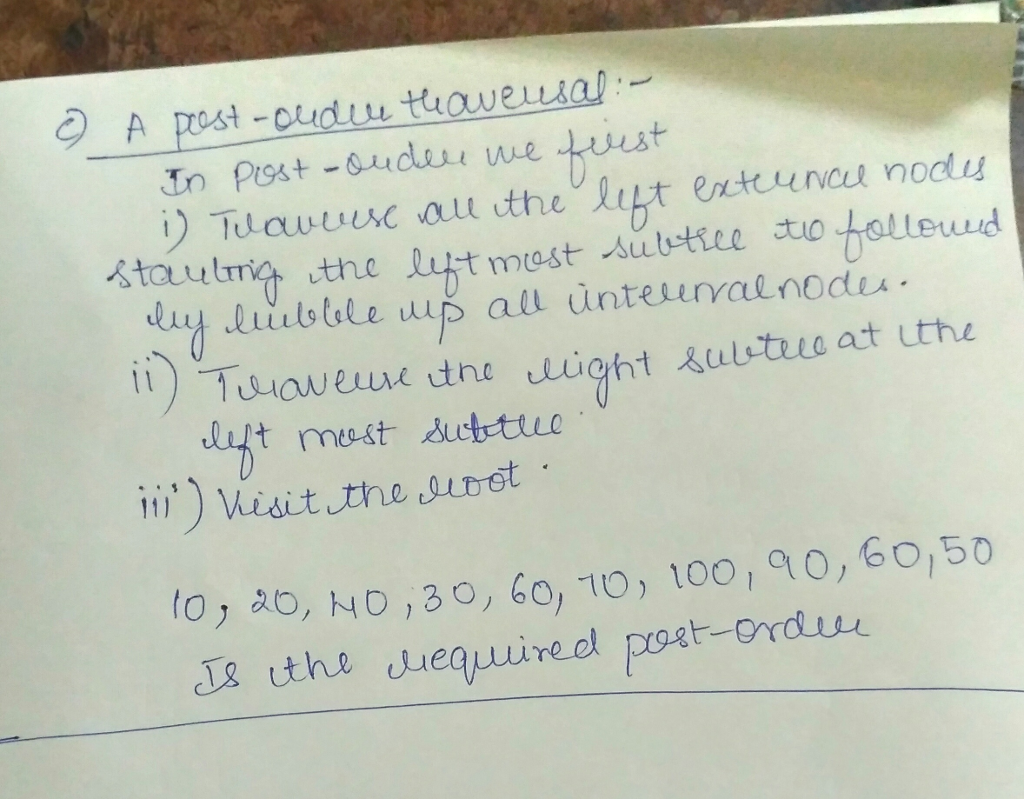 c) A post-order traversal:-
In Post-order we first
i) Traverse all the left external nodes
starting the left most subtree to followed
by bubble up all internal nodes.
ii) Traverse the right subtree at the
left most subtree.
iii) Visit the root.
10, 20, 40, 30, 60, 70, 100, 90, 60, 50
Is the required post-order